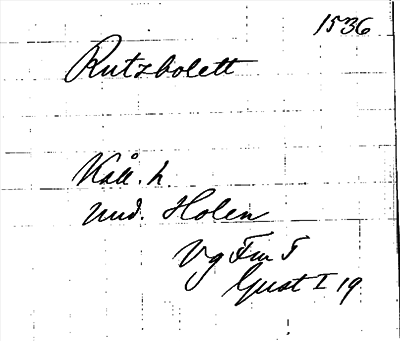 1536
Rutzbolett
Kåll. h.
und. Holen
Vg Fm F
Gust I 19